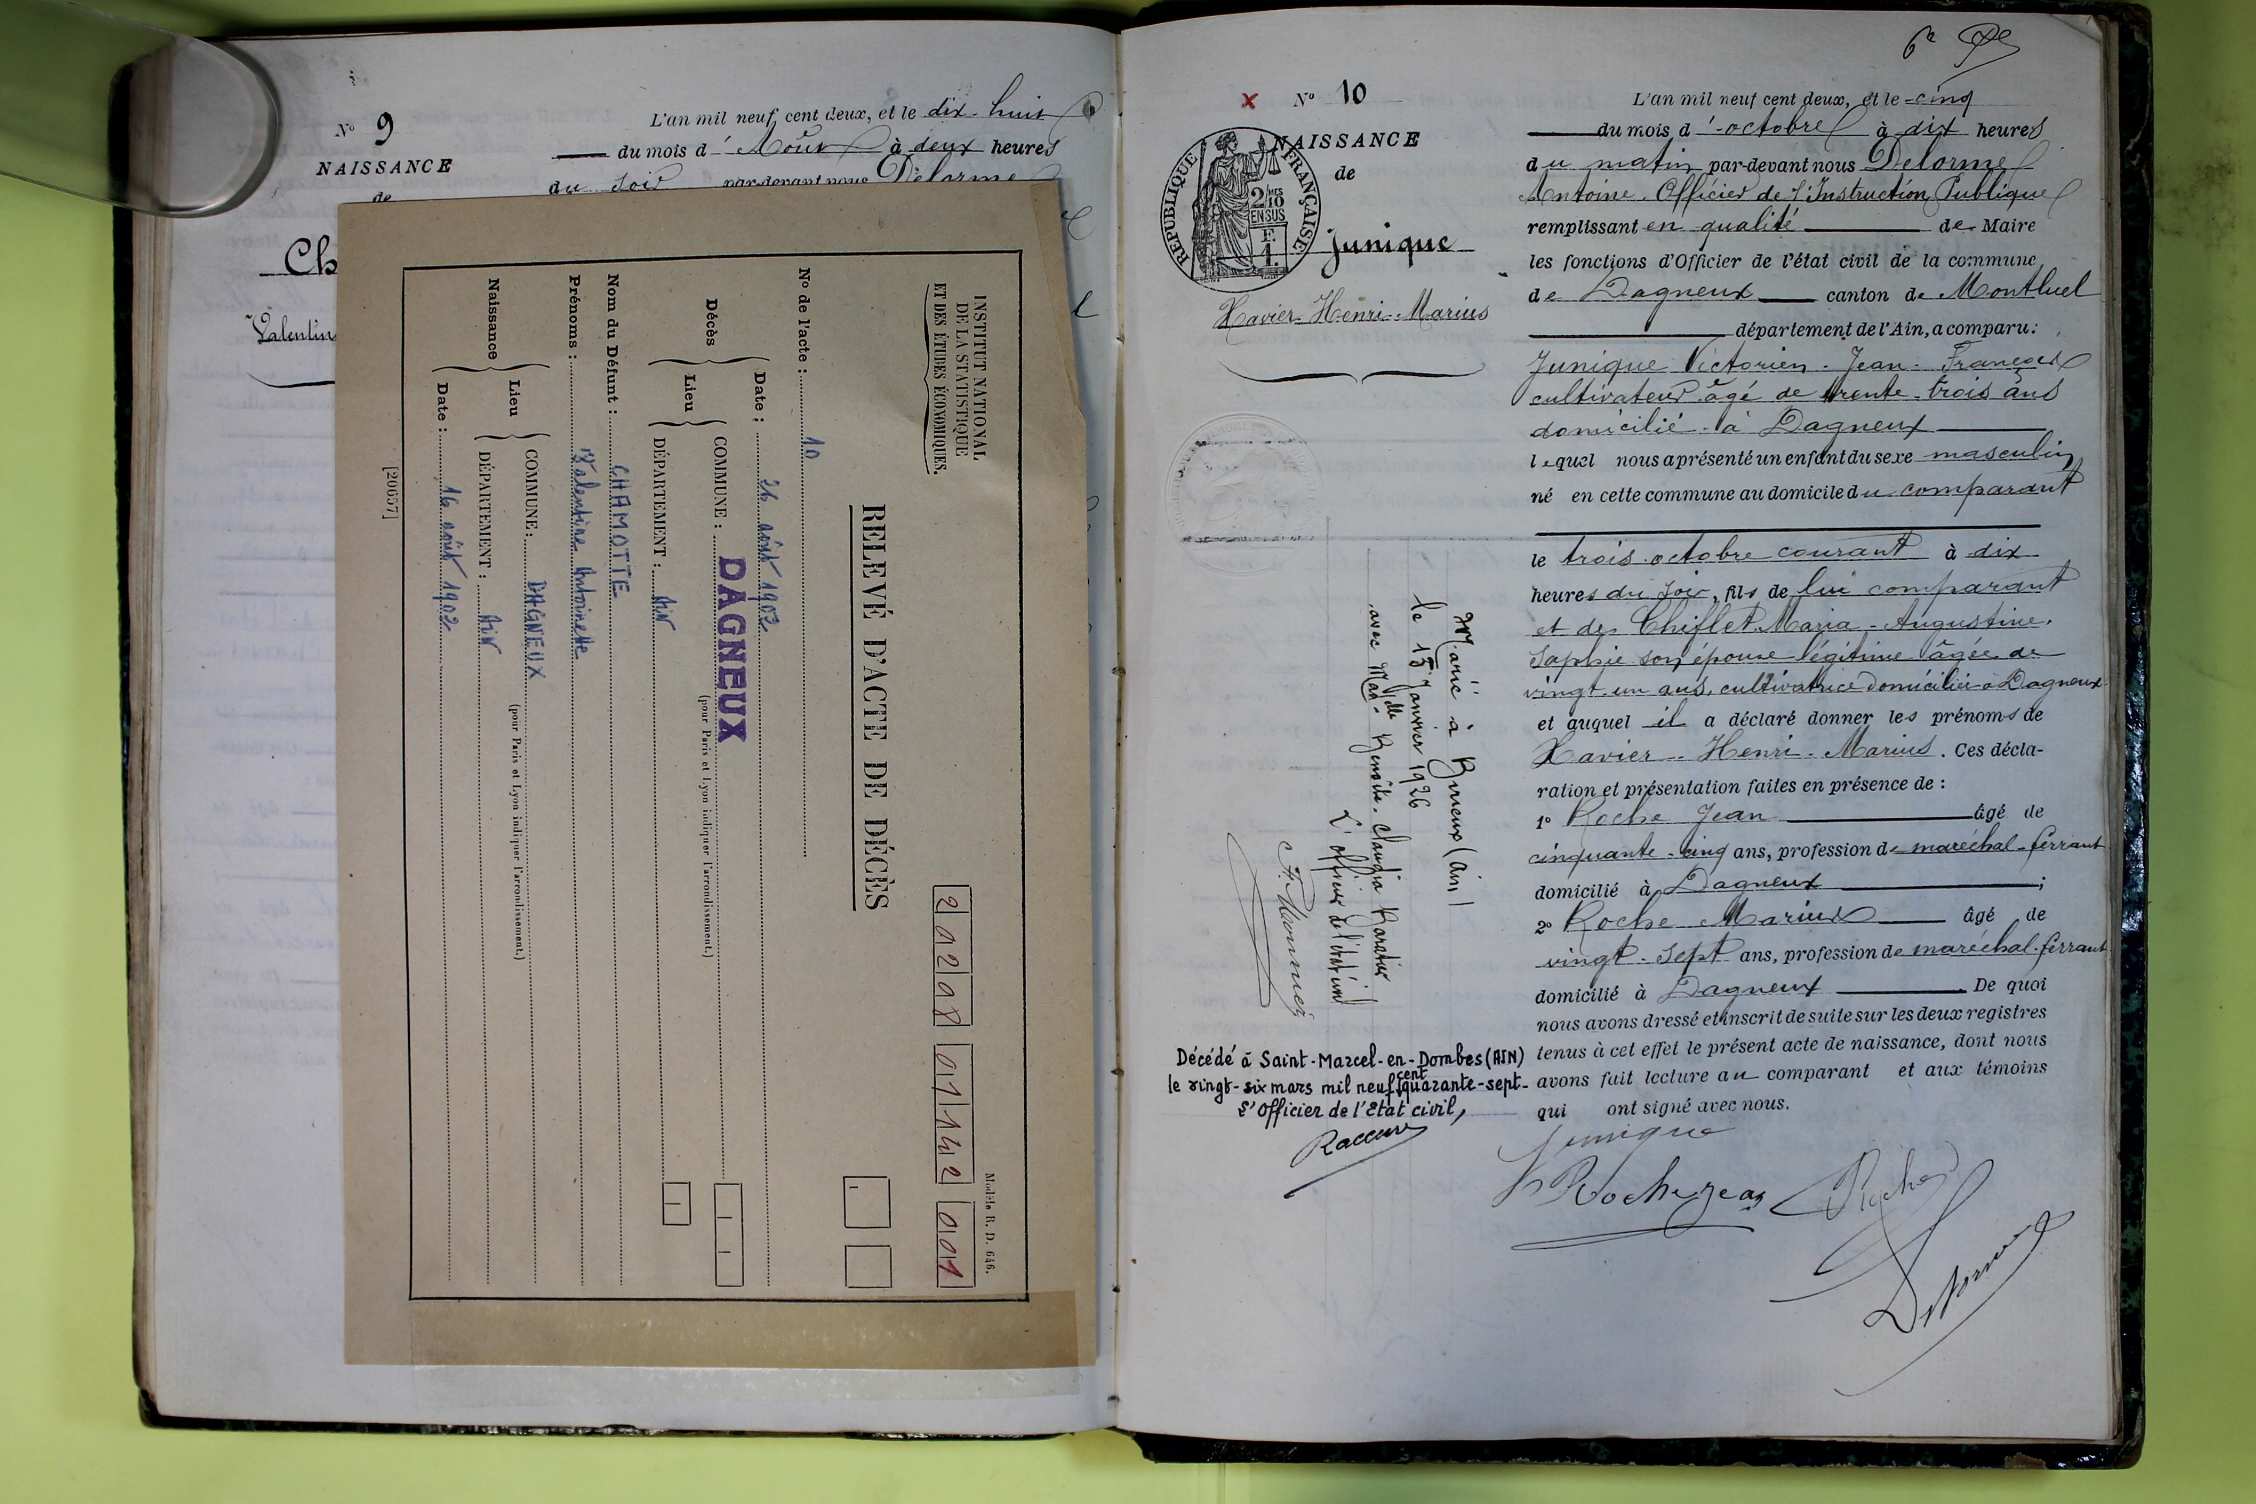 N° 9
NAISSANCE
de
Ch
Valentin
L'an mil neuf cent deux, et le dix-huit
du mois d'Août à deux heures
du soir par-devant nous Delorme
INSTITUT NATIONAL
DE LA STATISTIQUE
ET DES ÉTUDES ÉCONOMIQUES.
Modèle R. D. 646.
2 02 98 01 142 001
RELEVÉ D'ACTE DE DÉCÈS
N° de l'acte : 10
Décès
Date : 26 août 1902
Lieu
COMMUNE : DAGNEUX
(pour Paris et Lyon indiquer l'arrondissement.)
DÉPARTEMENT : Ain
Nom du Défunt : CHAMOTTE
Prénoms : Valentine Antoinette
Naissance
Lieu
COMMUNE : DAGNEUX
(pour Paris et Lyon indiquer l'arrondissement.)
DÉPARTEMENT : Ain
Date : 16 août 1902
[20657]
6e
x N° 10
NAISSANCE
de
RÉPUBLIQUE FRANÇAISE
2 MES
10
EN SUS
Junique
Xavier-Henri-Marius
L'an mil neuf cent deux, et le cinq
du mois d'octobre à dix heures
du matin par-devant nous Delorme
Antoine Officier de l'Instruction Publique
remplissant en qualité de Maire
les fonctions d'Officier de l'état civil de la commune
de Dagneux canton de Montluel
département de l'Ain, a comparu :
Junique Victorien-Jean-François
cultivateur âgé de trente-trois ans
domicilié à Dagneux
lequel nous a présenté un enfant du sexe masculin
né en cette commune au domicile du comparant
le trois octobre courant à dix
heures du soir, fils de lui comparant
et de Chifflet Maria-Augustine
Sophie son épouse légitime âgée de
vingt un ans, cultivatrice domiciliée à Dagneux
et auquel il a déclaré donner les prénoms de
Xavier-Henri-Marius. Ces décla-
ration et présentation faites en présence de :
1° Roche Jean âgé de
cinquante-cinq ans, profession de maréchal-ferrant
domicilié à Dagneux ;
2° Roche Marius âgé de
vingt-sept ans, profession de maréchal-ferrant
domicilié à Dagneux De quoi
nous avons dressé et inscrit de suite sur les deux registres
tenus à cet effet le présent acte de naissance, dont nous
avons fait lecture au comparant et aux témoins
qui ont signé avec nous.
Junique
Roche Jean
Roche
Delorme
Marié à Birieux (Ain)
le 15 janvier 1926
avec Melle Benoite-Claudia
L'officier de l'état civil
Décédé à Saint-Marcel-en-Dombes (AIN)
le vingt-six mars mil neuf cent quarante-sept-
L'Officier de l'Etat civil,